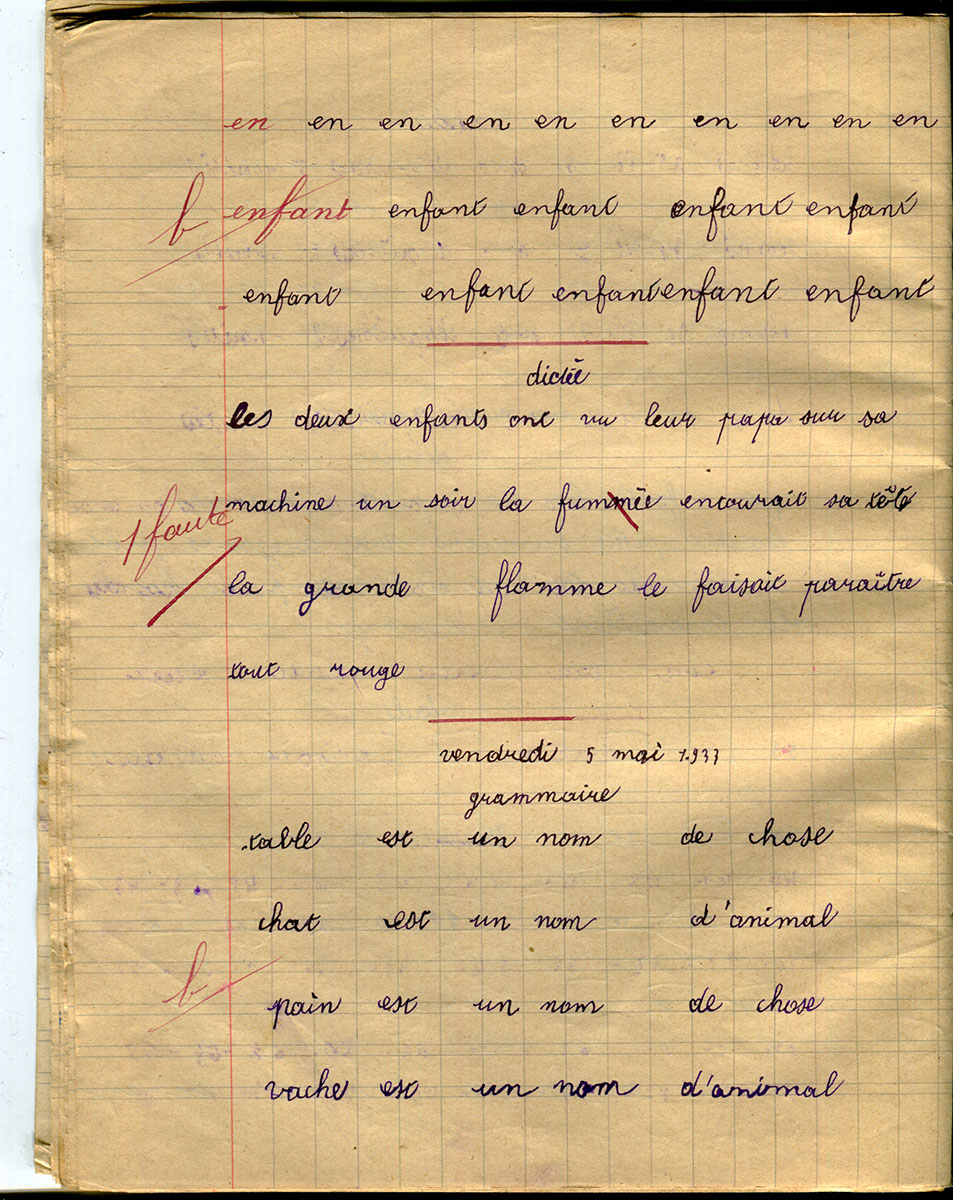 en en en en en en en en en en
b enfant enfant enfant enfant enfant
enfant enfant enfant enfant enfant
dictée
les deux enfants ont vu leur papa sur sa
1 faute machine un soir la fummée entourait sa tête
la grande flamme le faisait paraître
tout rouge
vendredi 5 mai 1933
grammaire
table est un nom de chose
chat est un nom d'animal
b
pain est un nom de chose
vache est un nom d'animal